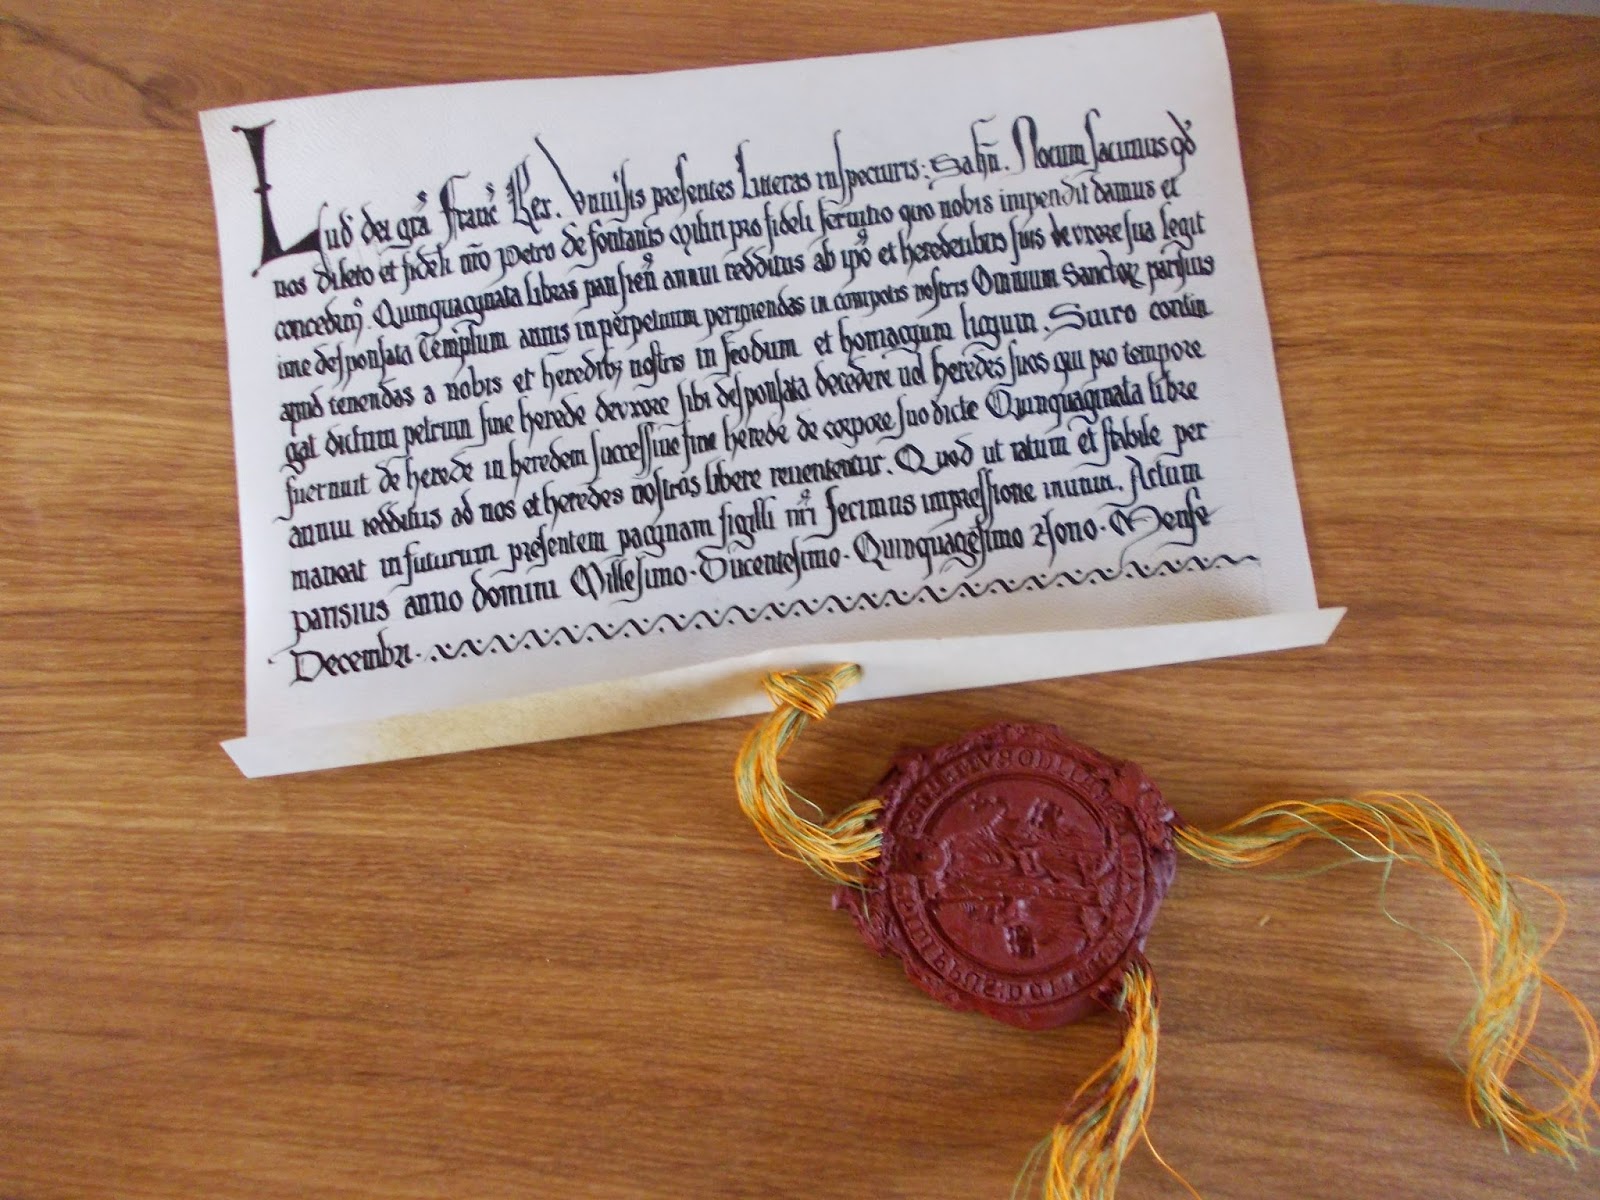 Lud' dei gra Franc' Rex. Vniu'sis presentes litteras inspecturis: Salt'm. Notum facimus q'd
nos dilecto et fideli n'ro Petro de fontanis militi pro fideli seruitio quo nobis impendit damus et
concedim'. Quinquaginata libras parisien' annui redditus ab ipo et heredetibus suis de vxore sua legit
ime desponsata Templum annis inperpetuum percipiendas in compotis nostris Omnium Sanctor parisius
apud tenendas a nobis et heredib; nostris in feodum et homagium ligium. Suiro contin
gat dictum petrum sine herede de vxore sibi desponsata decedere uel heredes suos qui pro tempore
fuernuit de herede in heredem successiue sine herede de corpore suo dicte Quinquaginata libre
annui redditus ad nos et heredes nostros libere reuentercur. Quod ut ratum et stabile per
maneat in futurum presentem paginam sigilli n'ri fecimus impressione muniri. Actum
parisius anno domini Millesimo. Ducentesimo. Quinquagesimo Nono. Mense
Decembri.